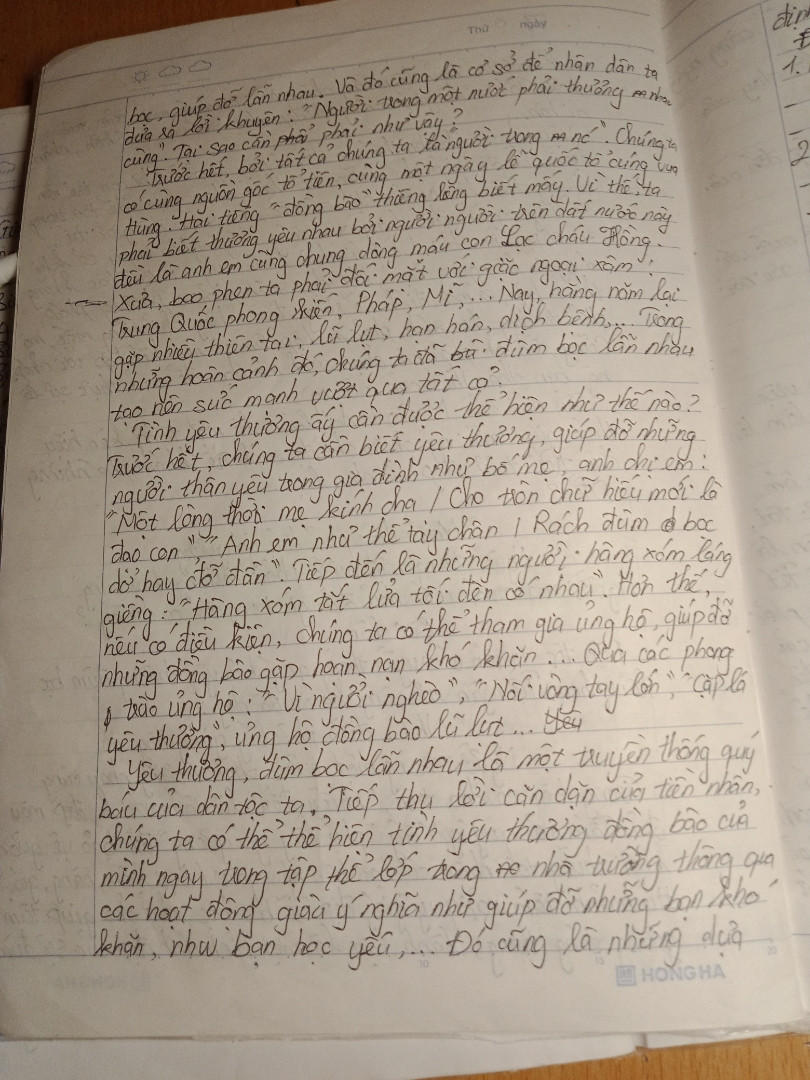 Thứ ngày
bọc, giúp đỡ lẫn nhau. Và đó cũng là cơ sở để nhân dân ta
đưa ra lời khuyên: "Người trong một nước phải thương nhau
cùng". Tại sao cần phải phải như vậy?
Trước hết, bởi tất cả chúng ta là người trong nc". Chúng ta
có cùng nguồn gốc tổ tiên, cùng một ngày lễ quốc tổ cùng vua
Hùng. Hai tiếng "đồng bào" thiêng liêng biết mấy. Vì thế, ta
phải biết thương yêu nhau bởi người người trên đất nước này
đều là anh em cùng chung dòng máu con Lạc cháu Hồng.
Xưa, bao phen ta phải đối mặt với giặc ngoại xâm:
Trung Quốc phong kiến, Pháp, Mĩ,... Nay, hàng năm lại
gặp nhiều thiên tai, lũ lụt, hạn hán, dịch bệnh,... Trong
những hoàn cảnh đó, chúng ta đã đùm bọc lẫn nhau
tạo nên sức mạnh vượt qua tất cả.
Tình yêu thương ấy cần được thể hiện như thế nào?
Trước hết, chúng ta cần biết yêu thương, giúp đỡ những
người thân yêu trong gia đình như bố mẹ, anh chị em:
"Một lòng thờ mẹ kính cha / Cho tròn chữ hiếu mới là
đạo con", "Anh em như thể tay chân / Rách đùm bọc
dở hay đỡ đần". Tiếp đến là những người hàng xóm láng
giềng: "Hàng xóm tắt lửa tối đèn có nhau". Hơn thế,
nếu có điều kiện, chúng ta có thể tham gia ủng hộ, giúp đỡ
những đồng bào gặp hoạn nạn khó khăn... Qua các phong
trào ủng hộ: "Vì người nghèo", "Nối vòng tay lớn", "Cặp lá
yêu thương", ủng hộ đồng bào lũ lụt...
Yêu thương, đùm bọc lẫn nhau là một truyền thống quý
báu của dân tộc ta. Tiếp thu lời căn dặn của tiền nhân,
chúng ta có thể thể hiện tình yêu thương đồng bào của
mình ngay trong tập thể lớp trong nhà trường thông qua
các hoạt động giàu ý nghĩa như giúp đỡ những bạn khó
khăn, như bạn học yếu,... Đó cũng là những đứa
HONG HA
1.
2